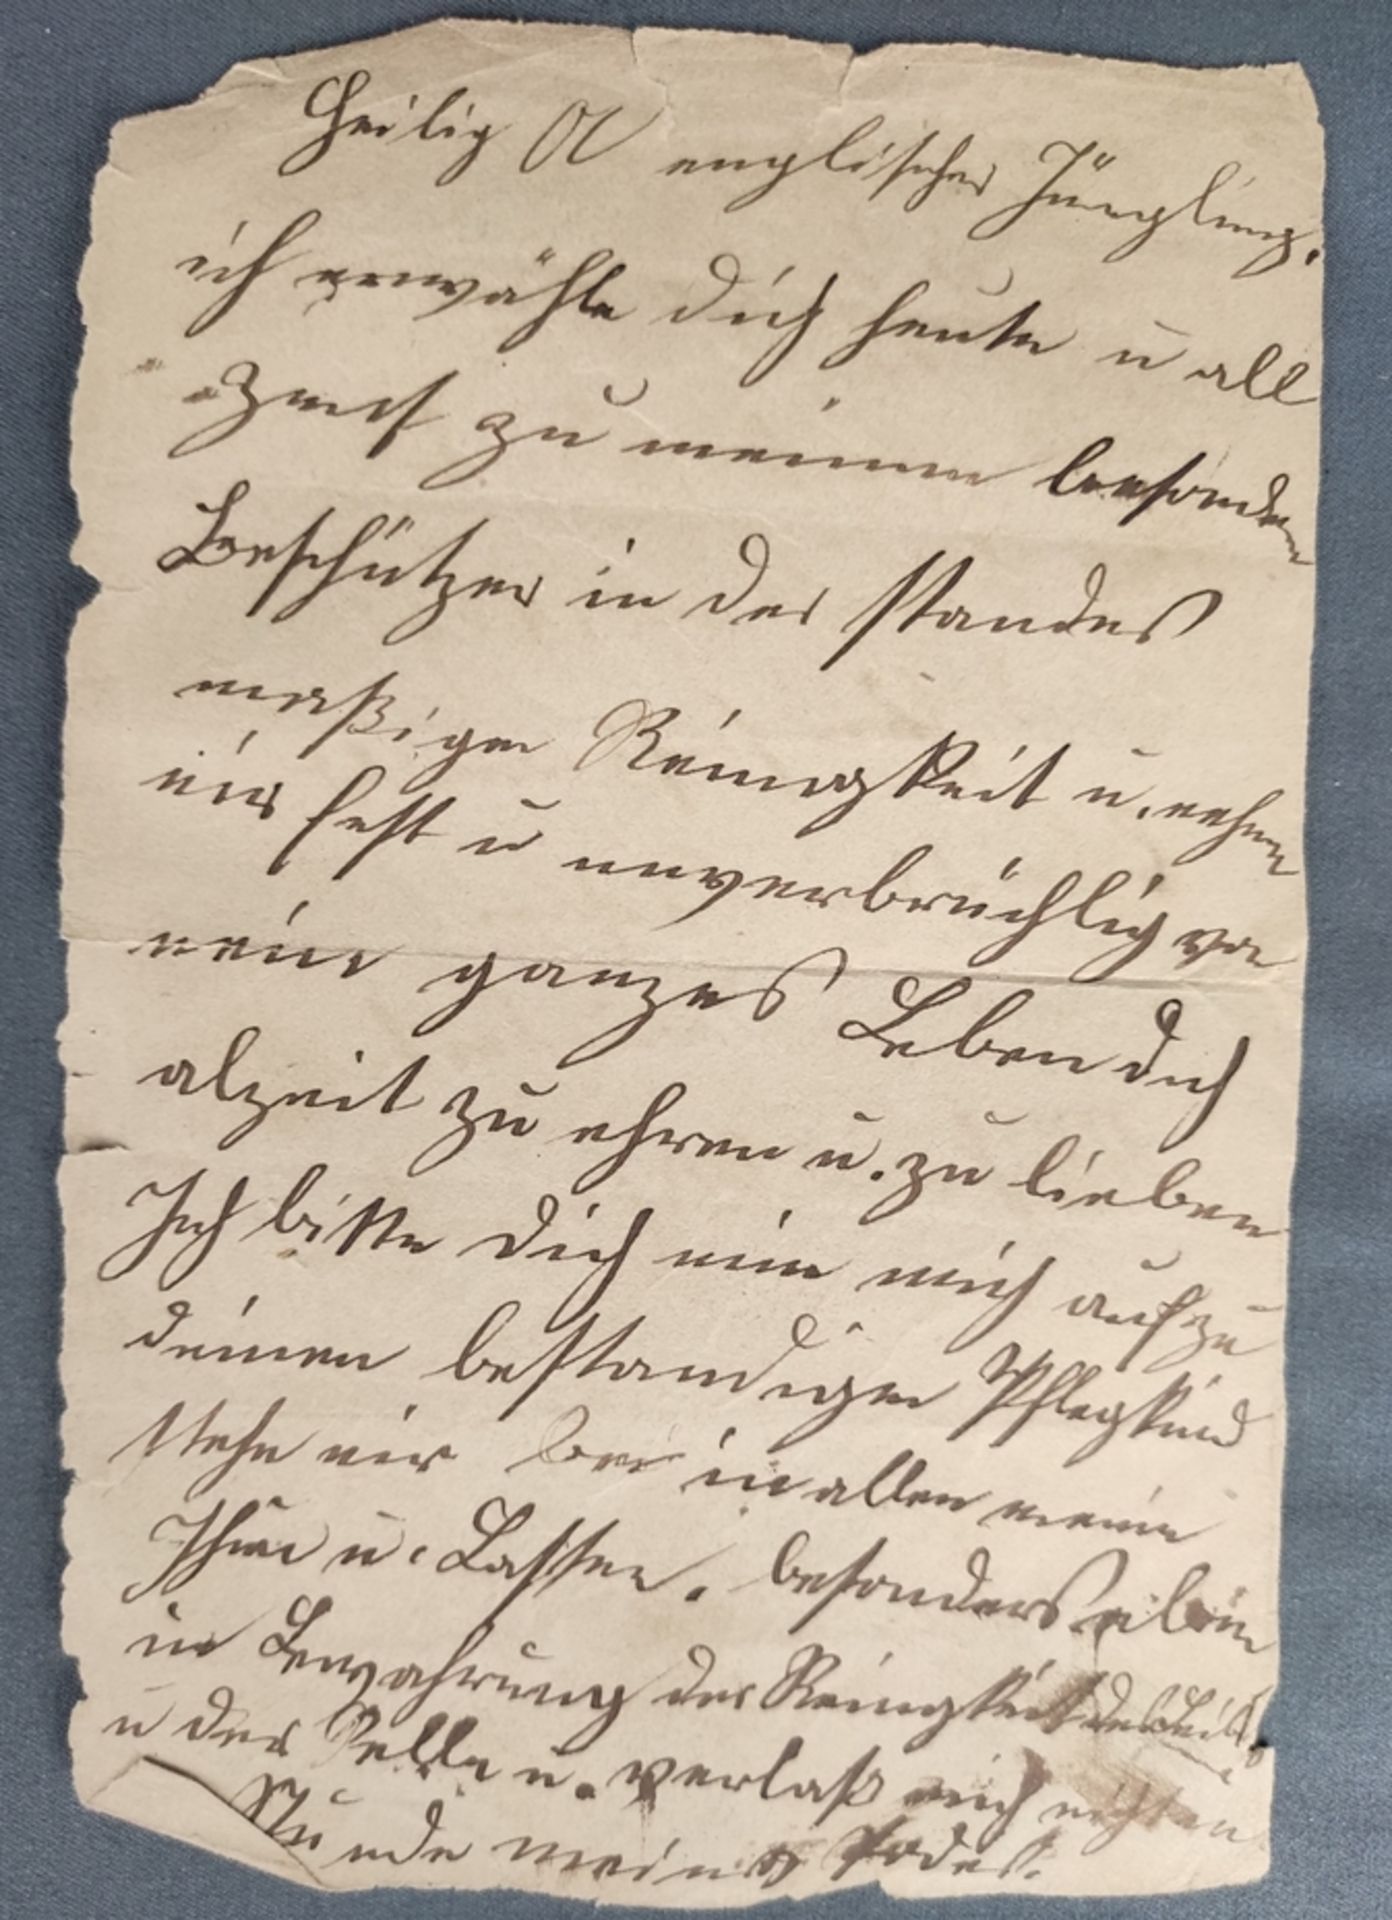 Heilig A englischer Jüngling.
ich erwähle dich heute u all
Zeit zu meinen besondern
Beschützer in der standes
maßigen Reinigkeit u. nehme
mir fest u unverbrüchlig vor
mein ganzes Leben dich
alzeit zu ehren u. zu lieben
Ich bitte dich nim mich auf zu
deinen bestandigen Pflegkind
stehe mir bei in allen meinen
Thun u. Lassen. besonders aber
in Bewahrung der Reinigkeit des Leibes
u der Selle u. verlaß mich nicht in
Stunde meines Todes.